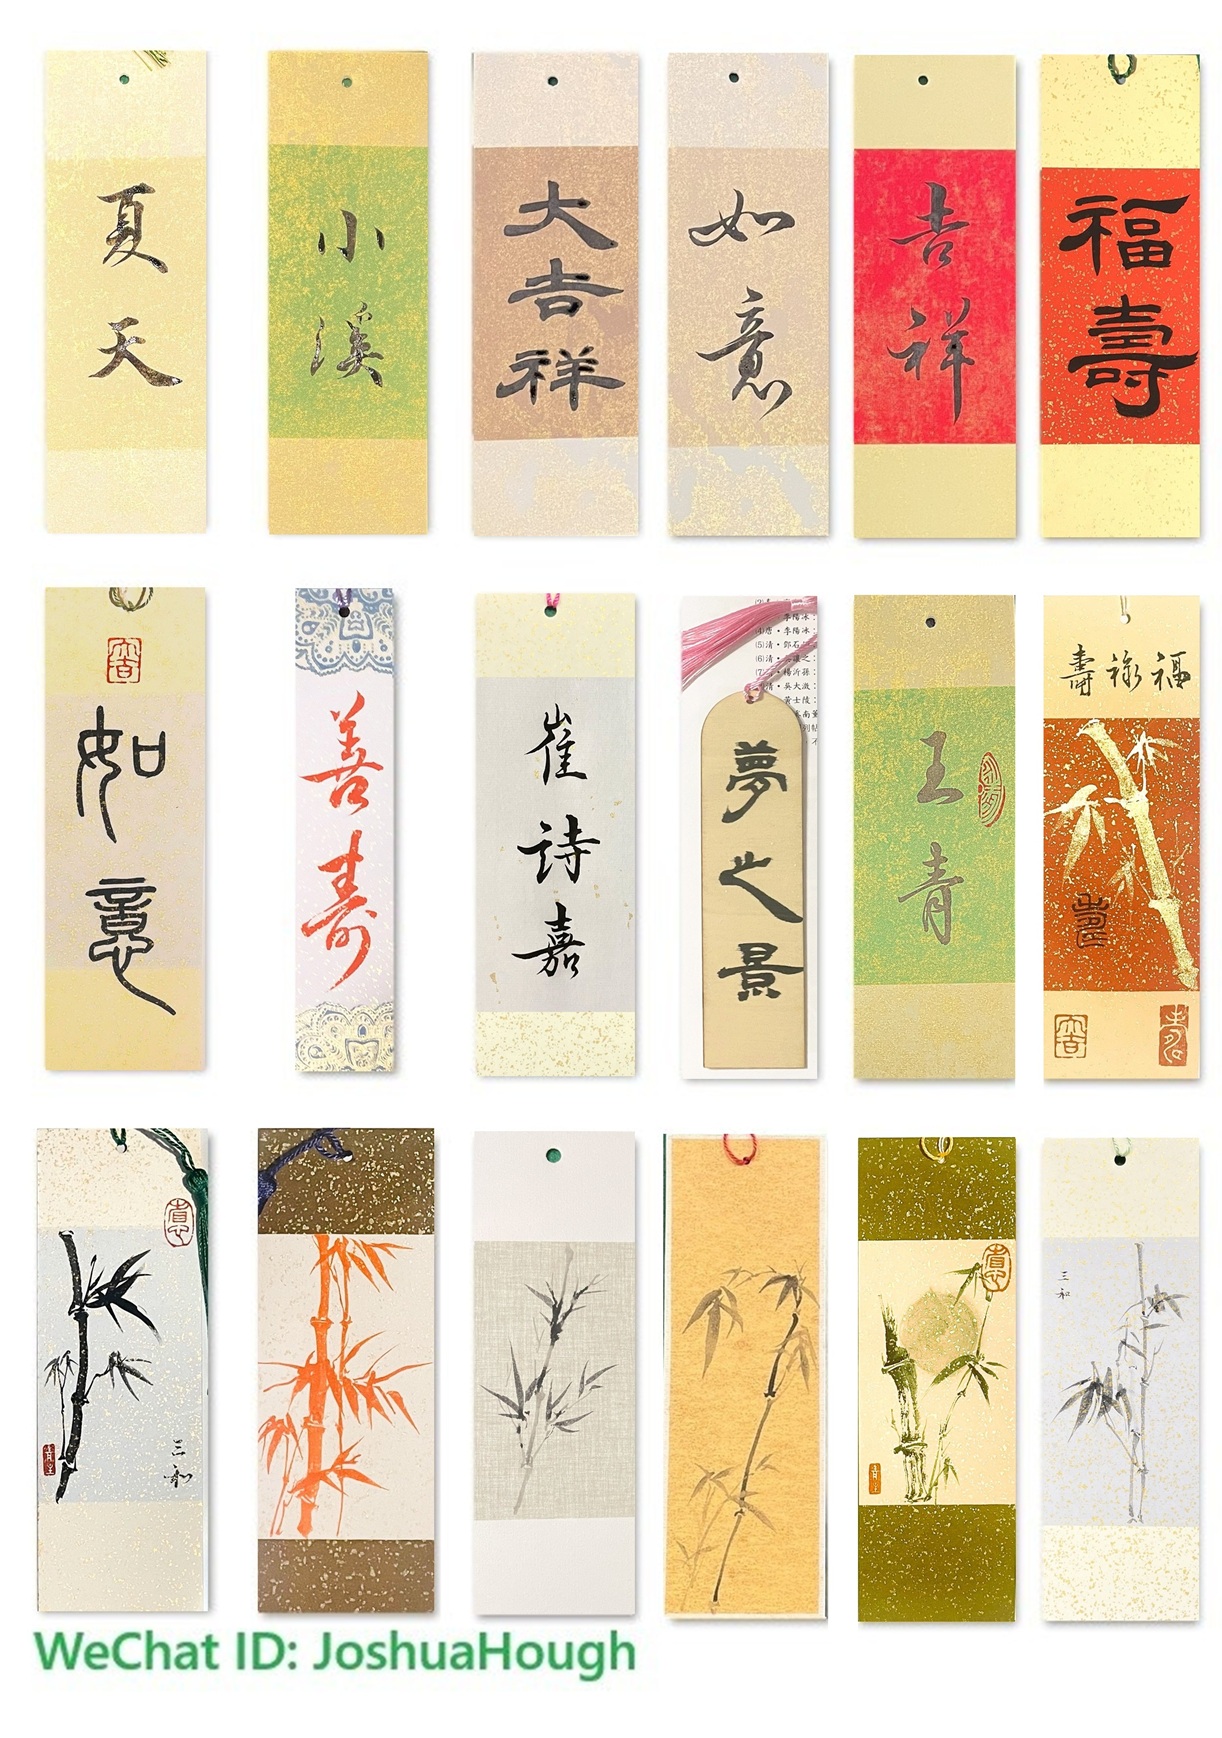 夏天
小溪
大吉祥
如意
吉祥
福壽
如意
善寿
崔詩嘉
夢之景
王青
壽禄福
三和
三和
WeChat ID: JoshuaHough